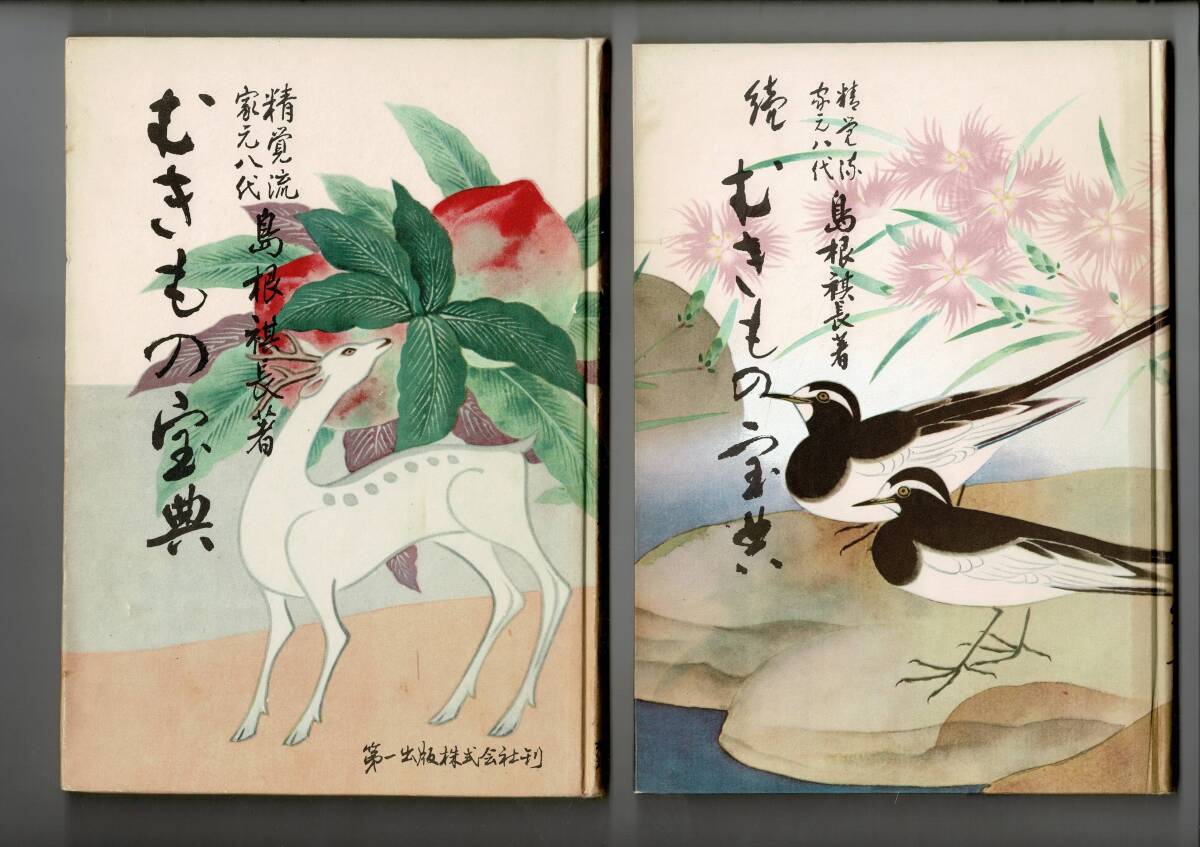 精覚流
家元八代
島根祺長著
むきもの宝典
第一出版株式会社刊
精覚流
家元八代
島根祺長著
続
むきもの宝典